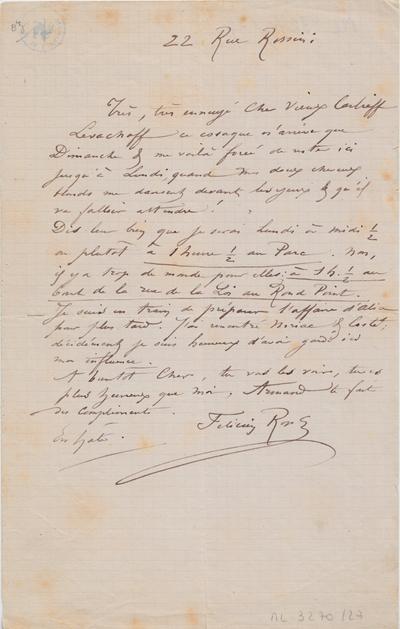 22 Rue Rossini
Très, très ennuyé Cher Vieux
Levachoff ce cosaque n'arrive que
Dimanche & me voilà forcé de rester ici
jusqu'à Lundi, quand mes doux cheveux
blonds me dansent devant les yeux & qu'il
va falloir attendre !
Dis leur bien que je serai Lundi à midi ½
ou plutôt à 1 heure ½ au Parc. Non,
il y a trop de monde pour elles : à 1 h. ½ au
bout de la rue de la Loi au Rond Point.
Je suis en train de préparer l'affaire d'Alice
pour plus tard. J'ai rencontré Noriac &
décidément je suis heureux d'avoir gardé ici
mon influence.
A bientôt Cher, tu vas les voir, tu es
plus heureux que moi, Armand te fait
des compliments.
Félicien Rops
En hâte.
RL 3270/27